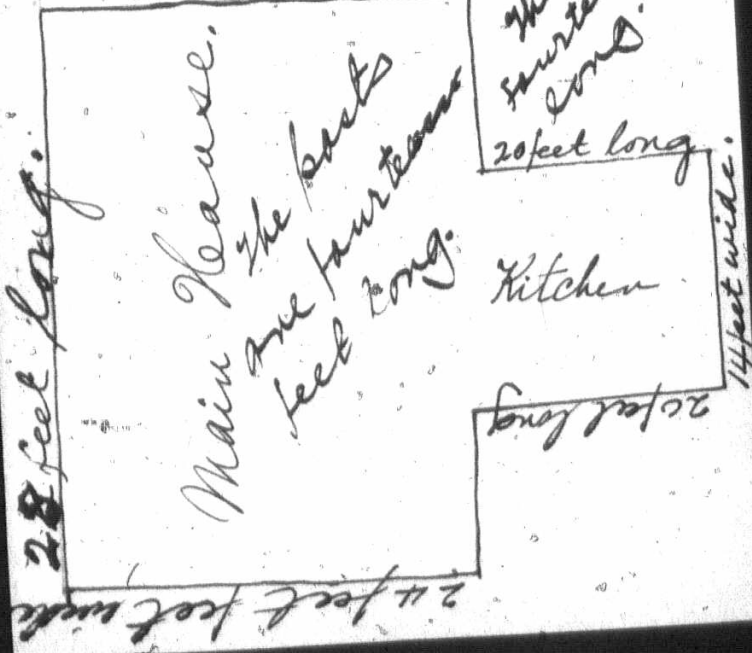 28 feet long.
Main House.
The posts
are fourteen
feet long.
fourte
long.
20 feet long
Kitchen
14 feet wide.
20 feet long
24 feet feet wide